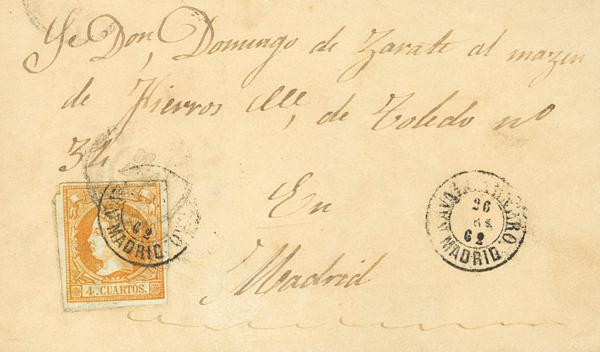 Sr Don, Domingo de Zarate al mazen
de Hierros Clle, de Toledo nº
34
En
Madrid
4 CUARTOS.
62
MADRID
NAVALCARNERO.
26
62
MADRID